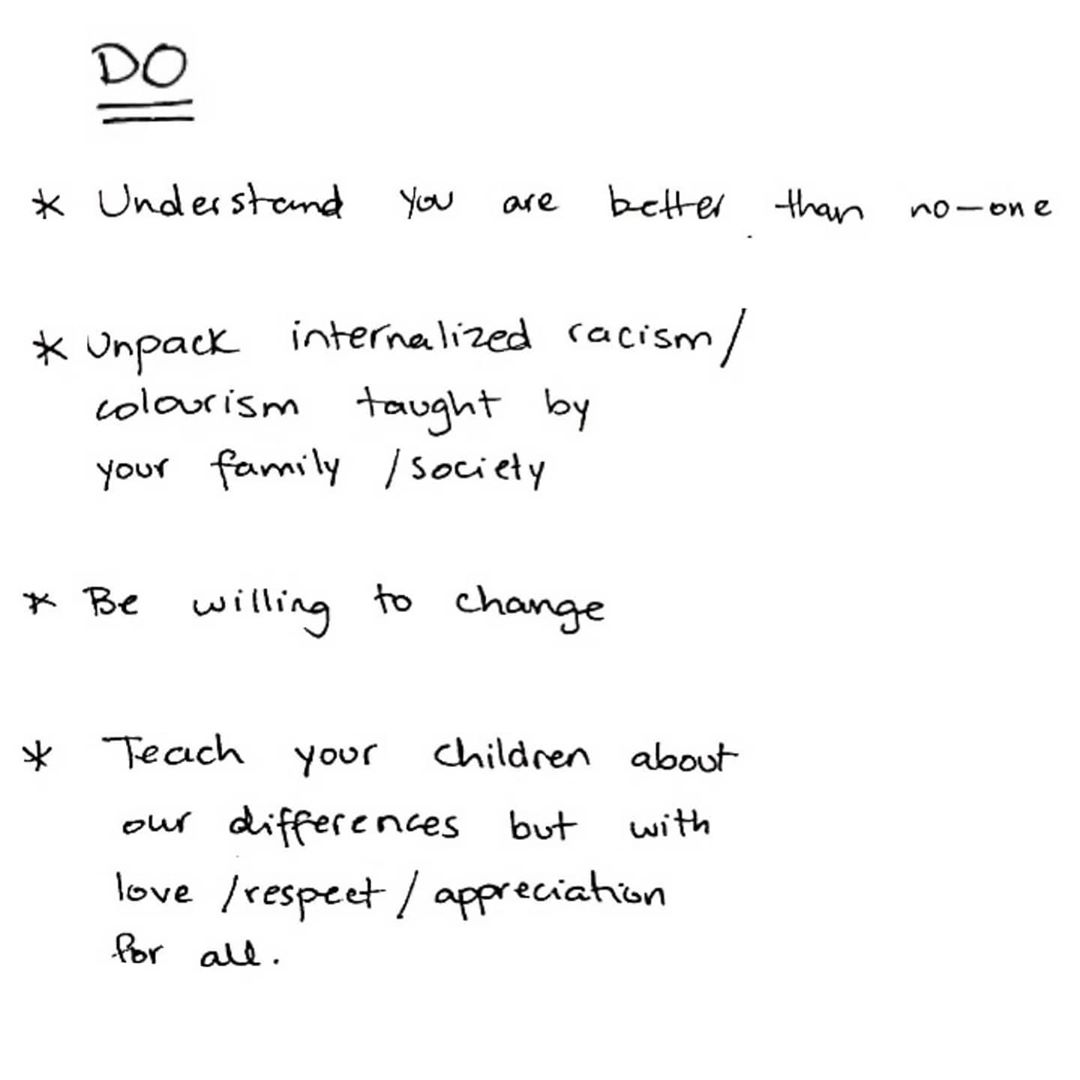 DO
* Understand you are better than no-one
* Unpack internalized racism/
colourism taught by
your family /society
* Be willing to change
* Teach your children about
our differences but with
love /respect/ appreciation
for all.